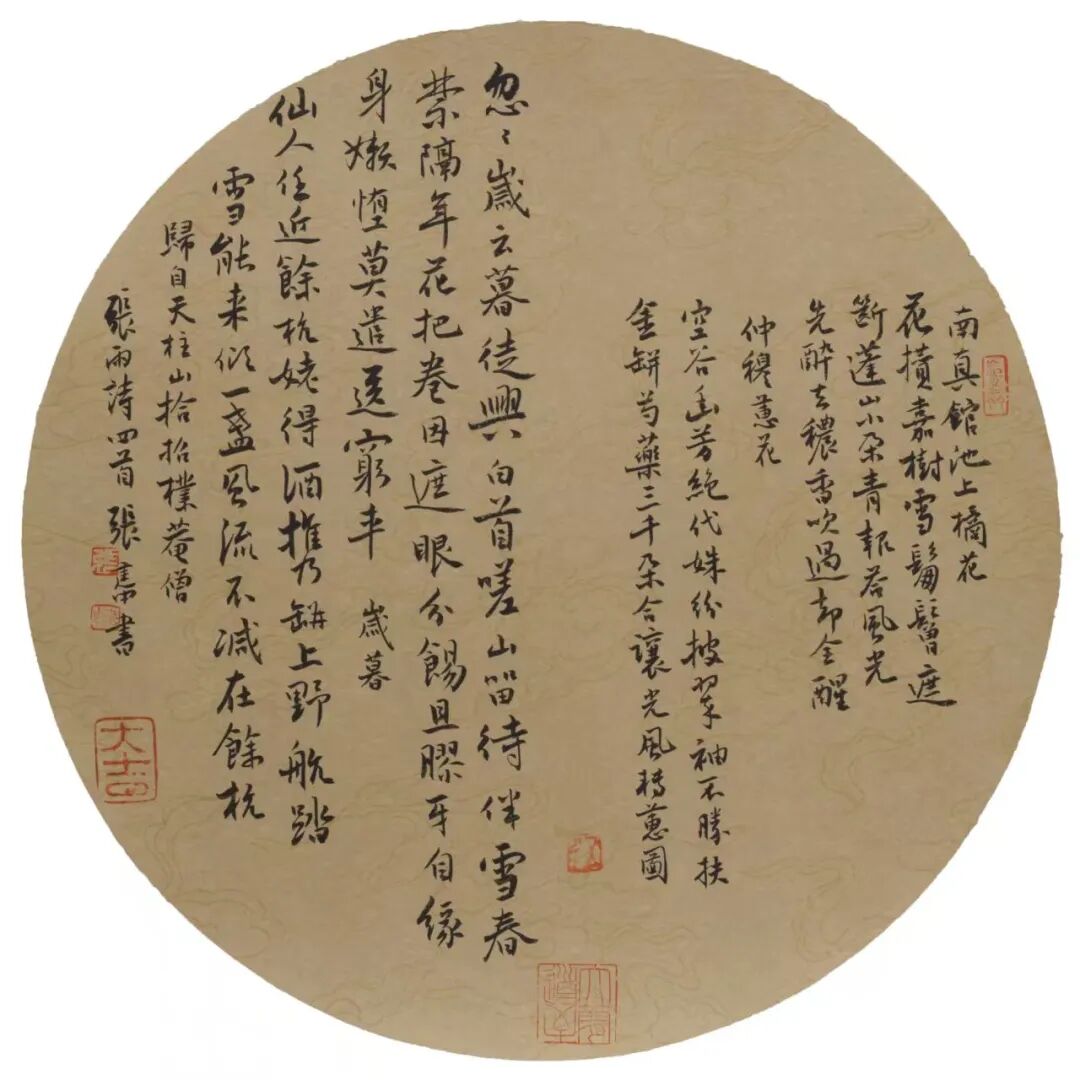 南真館池上橘花
花攢嘉樹雪鬅鬙遮
斷蓬山小朵青報答風光
先醉去穠香吹過却全醒
仲穆蕙花
空谷幽芳絶代姝紛披翠袖不勝扶
金缾芍藥三千朵合讓光風轉蕙圖
忽〻歲云暮徒興白首嗟山留待伴雪春
禁隔年花把卷因遮眼分餳且膠牙自緣
身嬾惰莫遣送窮車 歲暮
仙人任近餘杭姥得酒推乃缾上野航踏
雪能来似一盞風流不減在餘杭
歸自天柱山拾招樸菴僧
張雨詩四首 張書